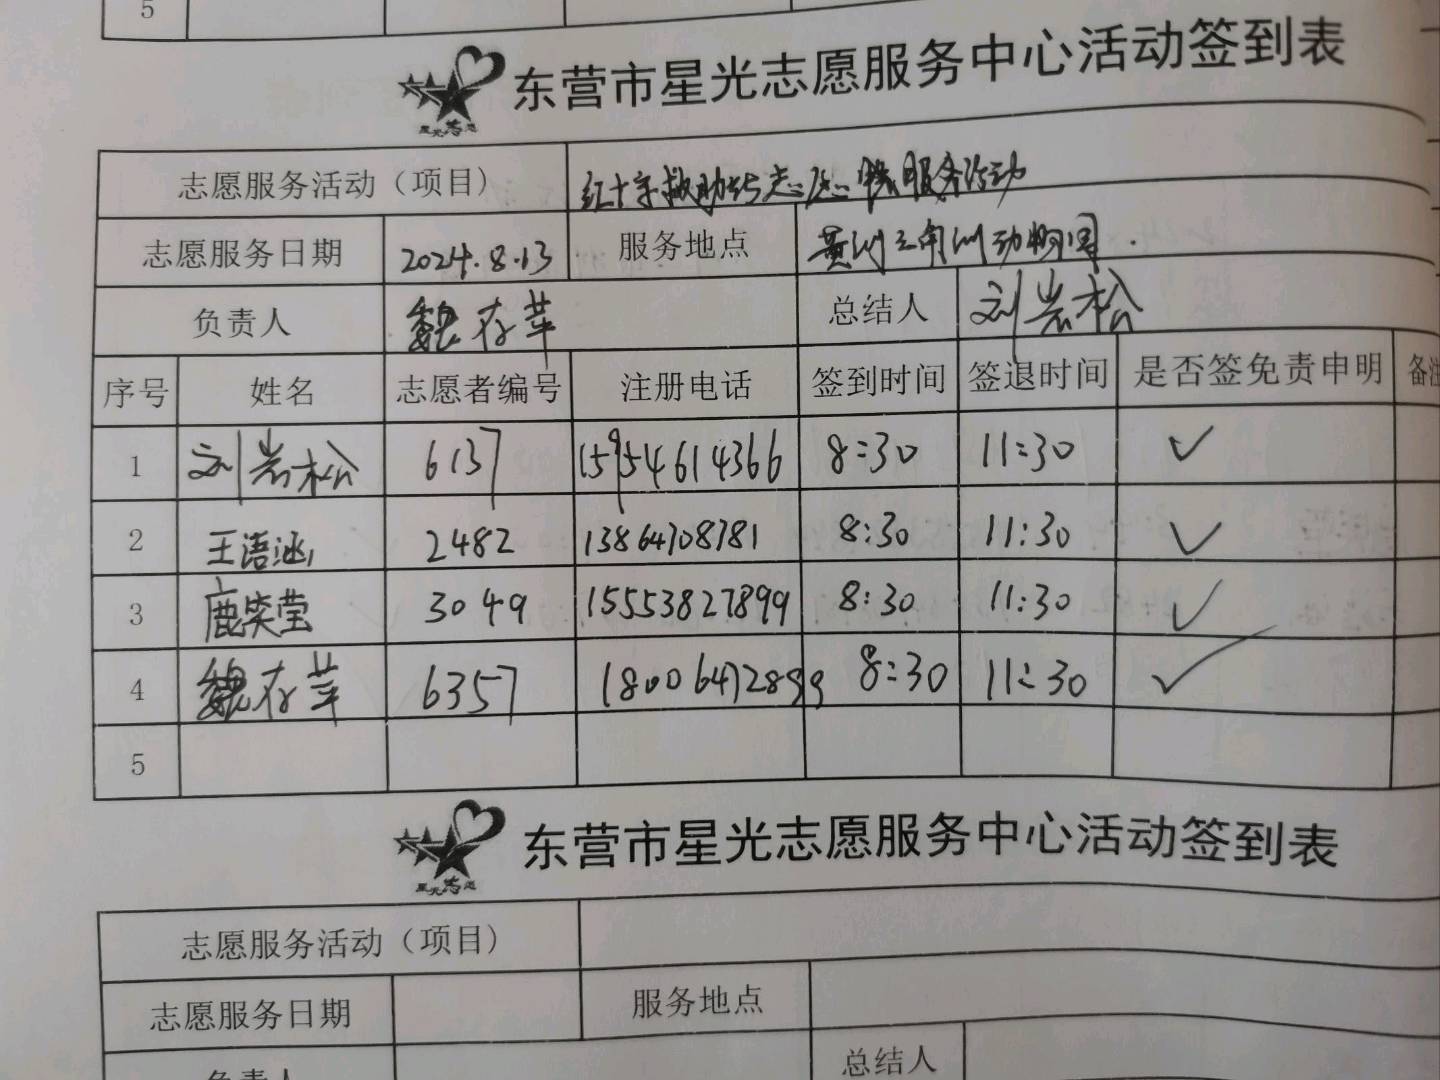 5
东营市星光志愿服务中心活动签到表
星光志愿
志愿服务活动（项目） 红十字救助站志愿服务活动
志愿服务日期 2024.8.13 服务地点 黄河三角洲动物园
负责人 魏存苹 总结人 刘岩松
序号 姓名 志愿者编号 注册电话 签到时间 签退时间 是否签免责申明 备注
1 刘岩松 6137 15954614366 8:30 11:30 ✓
2 王语涵 2482 13864708781 8:30 11:30 ✓
3 鹿笑莹 3049 15553827899 8:30 11:30 ✓
4 魏存苹 6357 18006472899 8:30 11:30 ✓
5
东营市星光志愿服务中心活动签到表
星光志愿
志愿服务活动（项目）
志愿服务日期 服务地点
负责人 总结人